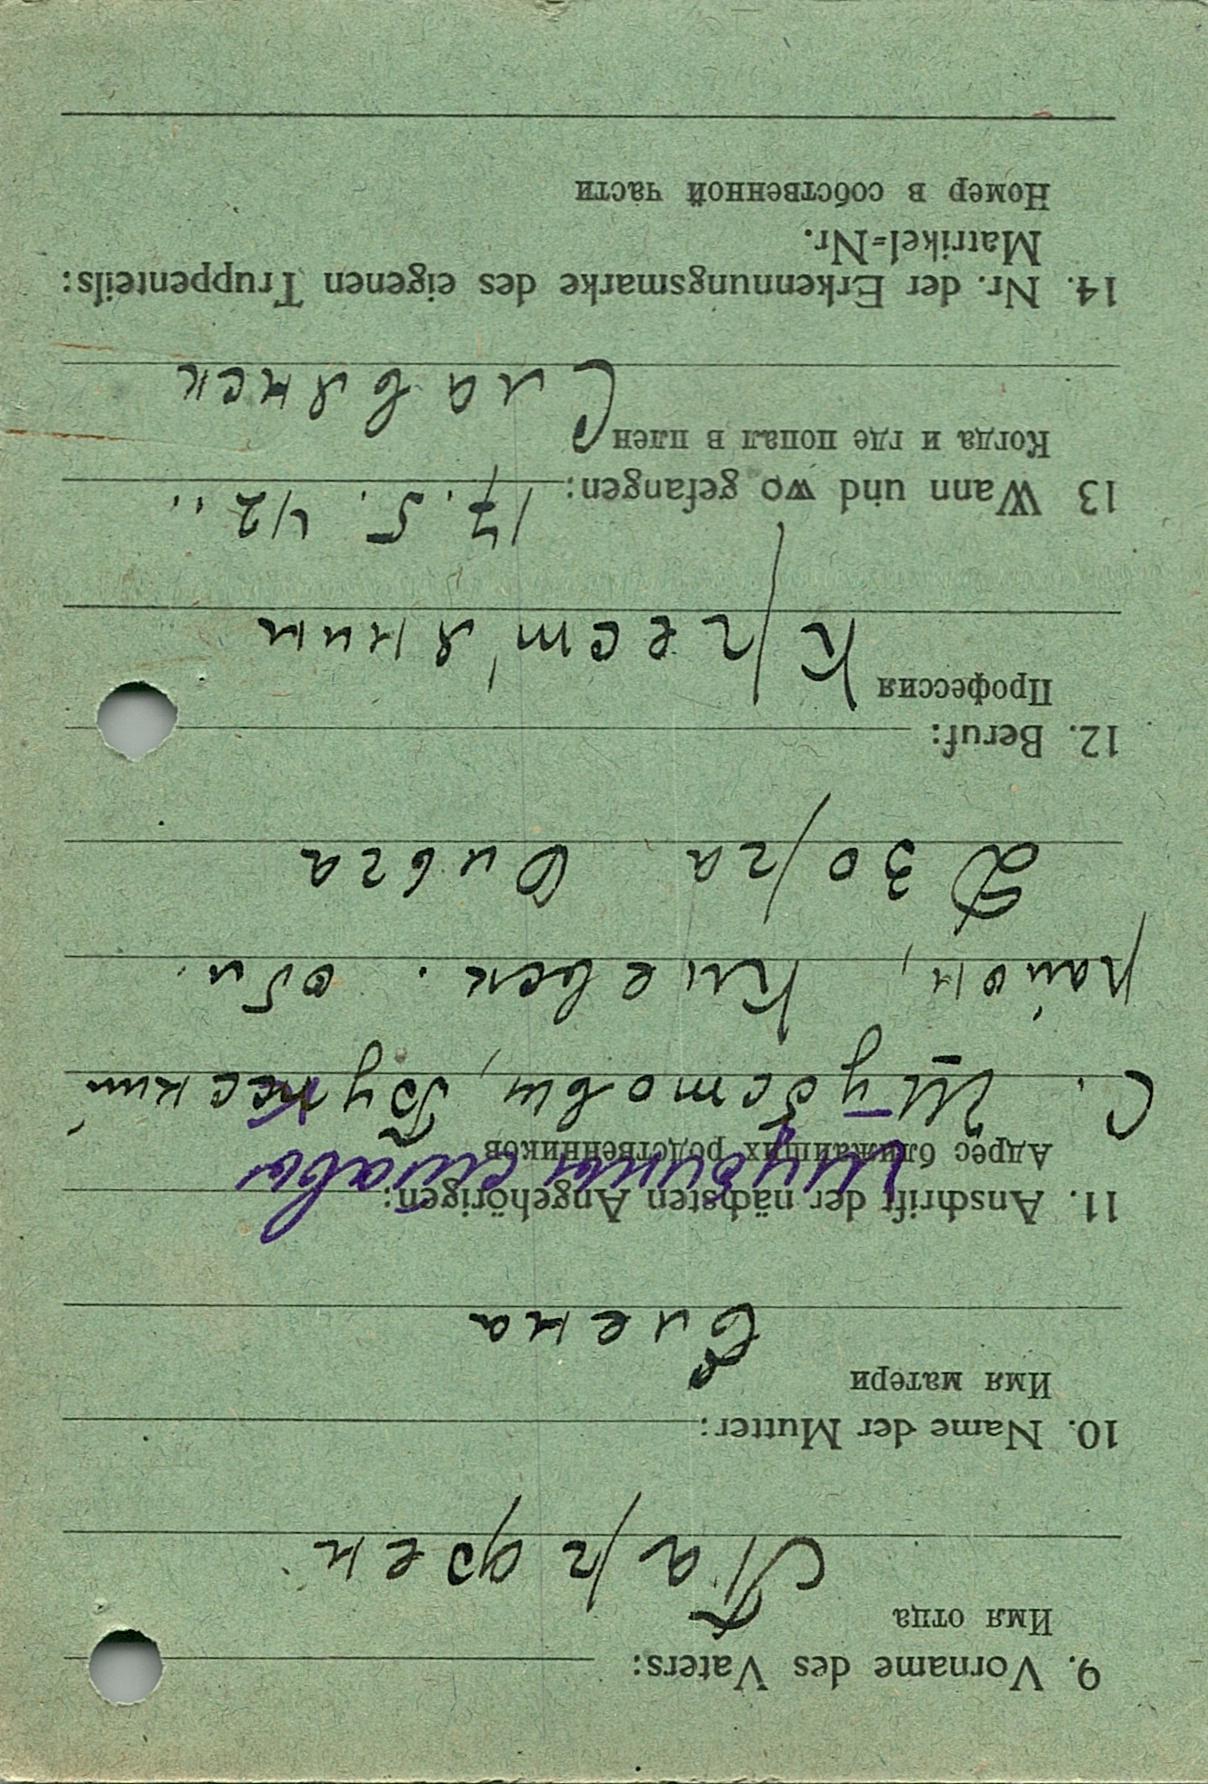 9. Vorname des Vaters:
Имя отца
Парфен
10. Name der Mutter:
Имя матери
Елена
11. Anschrift der nächsten Angehörigen:
Адрес ближайших родственников
С.
район, Киевск. обл.
Дзюра Ольга
12. Beruf:
Профессия
Крестянин
13 Wann und wo gefangen: 17. 5. 42..
Когда и где попал в плен Славянск
14. Nr. der Erkennungsmarke des eigenen Truppenteils:
Matrikel=Nr.
Номер в собственной части